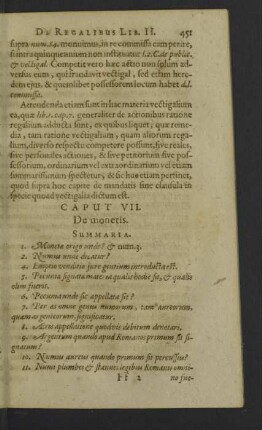 DE REGALIBUS LIB. II. 451
supra num. 14. monuimus, in re commissa eam perire,
si intra quinquennium non instituatur l. 2. C. de public.
& vectigal. Competit vero hæc actio non solum ad-
versus eum, qui fraudavit vectigal, sed etiam here-
dem ejus, & quemlibet possessorem locum habet d.l.
commissa.
Attendenda etiam sunt in hac materia vectigalium
ea, quæ lib. 1. cap. generaliter de actionibus ratione
regalium addictis sunt, ex quibus liquet, quæ reme-
dia, tam ratione vectigalium, quam aliorum rega-
lium, diverso respectu competere possunt, sive reales,
sive personales actiones, & sive petitorium sive pos-
sessorium, ordinarium vel extraordinarium vel etiam
summarissimum spectetur, & sic huc etiam pertinet,
quod supra hoc capite de mandatis sine clausula in
specie quoad vectigalis dictum est.
CAPUT VII.
De monetis.
SUMMARIA.
1. Moneta origo unde? & num. 3.
2. Numus unde dicatur?
4. Emptio venditio jure gentium introducta est.
5. Pecunia signata materia qualis hodie sit, & qualis
olim fuerit.
6. Pecunia unde sic appellata sit?
7. Per æs omne genus numorum, tam aureorum,
quam argenteorum significatur.
8. Æris appellatione quodvis debitum denotari.
9. Argentum quando apud Romanos primum sit si-
gnatum?
10. Numus aureus quando primum sit percussus?
11. Numi plumbei & stannei legibus Romanis omni-
Ff 2 no